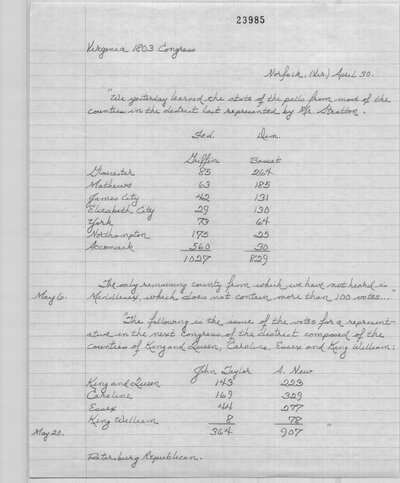 23985
Virginia 1803 Congress
Norfolk, (Vir.) April 30.
"We yesterday learned the state of the polls from most of the
counties in the district last represented by Mr. Stratton.
Fed. Dem.
Griffin Basset
Gloucester 85 264
Mathews 63 185
James City 42 131
Elizabeth City 29 130
York 73 64
Northampton 175 25
Accomack 560 30
1027 829
The only remaining county from which we have not heard is
May 6. Middlesex, which does not contain more than 100 votes..."
"The following is the issue of the votes for a represent-
ative in the next Congress of the district composed of the
counties of King and Queen, Caroline, Essex and King William:
John Taylor A. New
King and Queen 143 223
Caroline 169 329
Essex 44 277
King William 8 78
364 907 "
May 20.
Petersburg Republican.